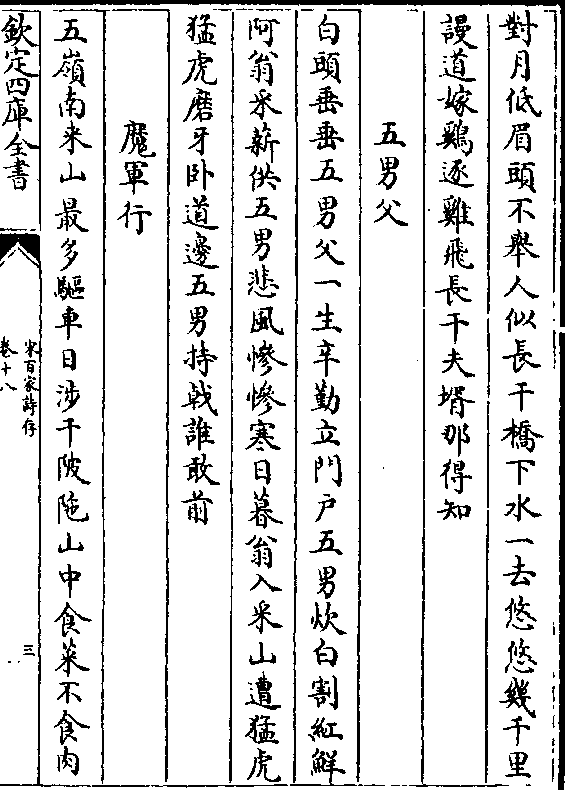 對月低眉頭不舉人似長干橋下水一去悠悠幾千里
謾道嫁鷄逐雞飛長干夫壻那得知
五男父
白頭垂垂五男父一生辛勤立門戶五男炊白割紅鮮
阿翁采薪供五男悲風慘慘寒日暮翁入采山遭猛虎
猛虎磨牙卧道邊五男持戟誰敢前
魔軍行
五嶺南来山最多驅車日涉千陂陁山中食菜不食肉
欽定四庫全書
宋百家詩存
卷十八
三